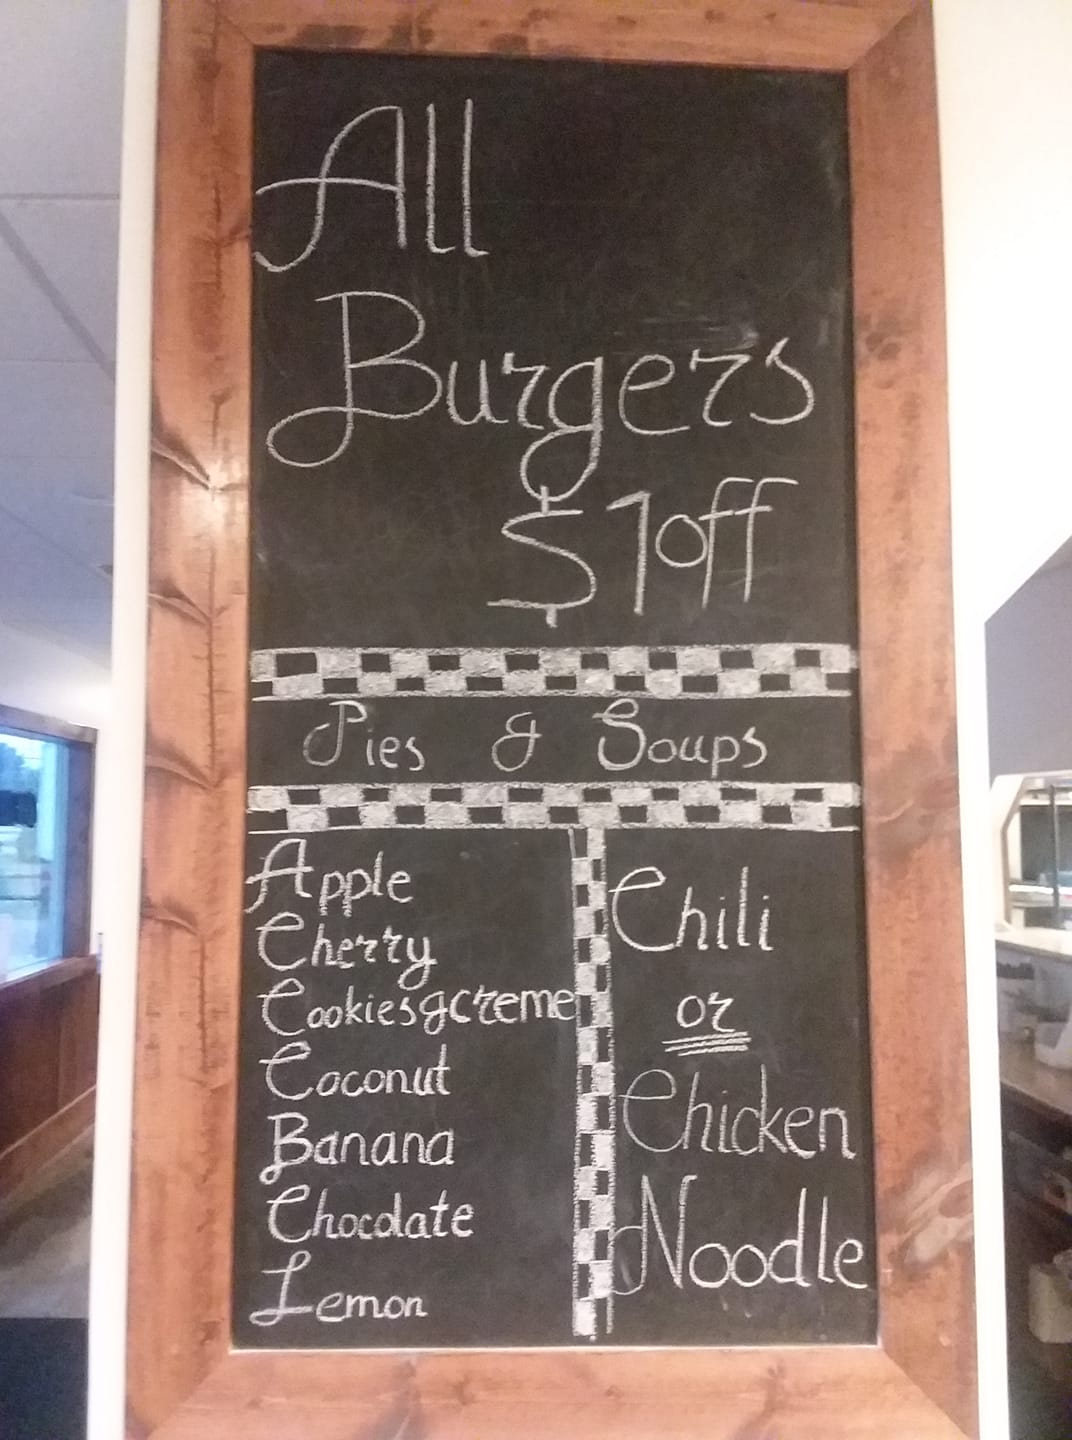 All
Burgers
$1off
Pies & Soups
Apple
Cherry
Cookies&creme
Coconut
Banana
Chocolate
Lemon
Chili
or
Chicken
Noodle